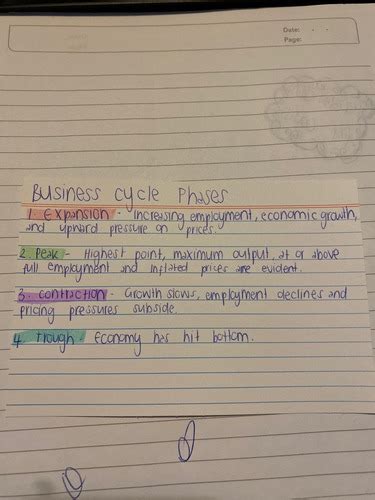 Date:
Page:
Business Cycle Phases
1. Expansion - Increasing employment, economic growth,
and upward pressure on prices.
2. Peak - Highest point, maximum output, at or above
full employment and inflated prices are evident.
3. contraction - Growth slows, employment declines and
pricing pressures subside.
4. Trough - Economy has hit bottom.